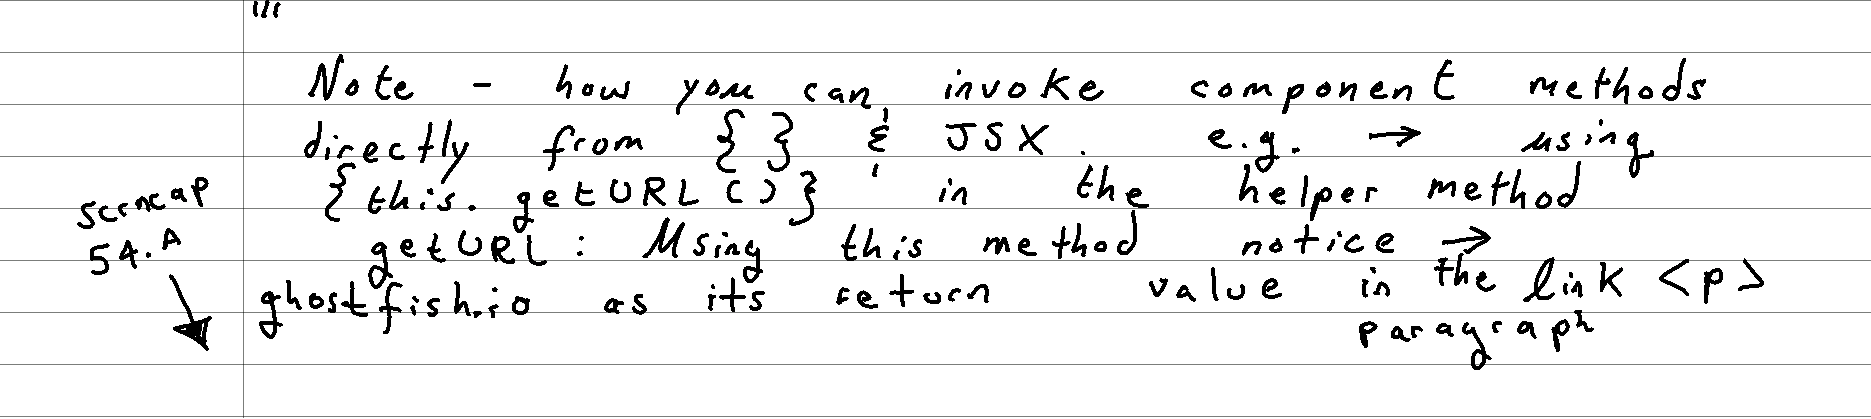 Note - how you can invoke component methods
directly from { } & JSX. e.g. → using
{this.getURL()} in the helper method
scrncap
54.A
getURL: Using this method notice →
ghostfish.io as its return value in the link <p>
paragraph